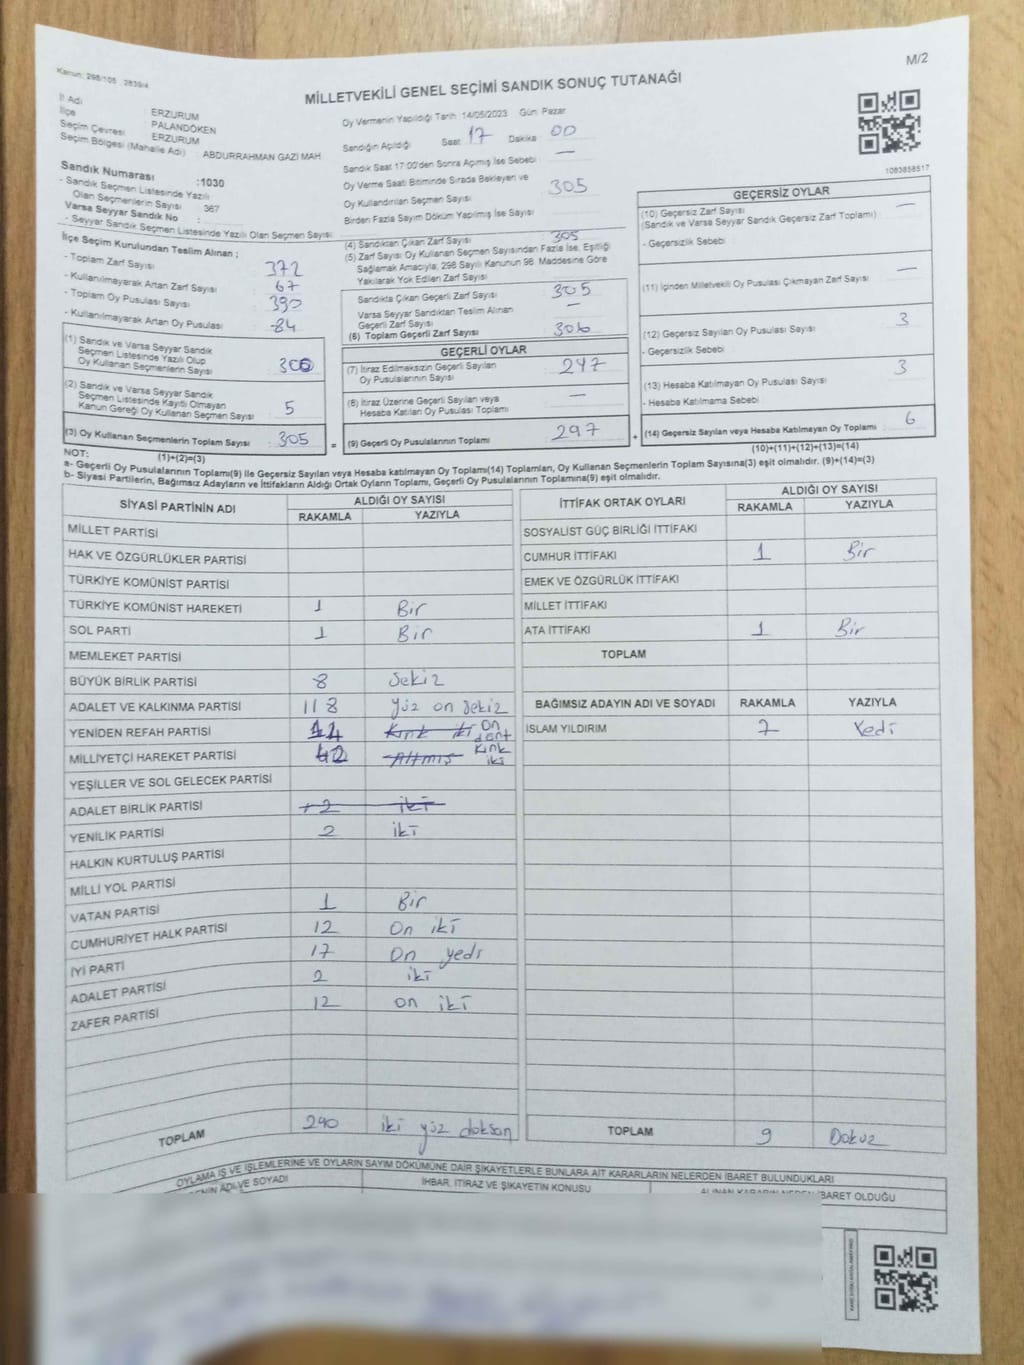 M/2
Kanun: 298/105 , 2839/4
MİLLETVEKİLİ GENEL SEÇİMİ SANDIK SONUÇ TUTANAĞI
İl Adı : ERZURUM
İlçe : PALANDÖKEN
Seçim Çevresi : ERZURUM
Seçim Bölgesi (Mahalle Adı) : ABDURRAHMAN GAZİ MAH
Sandık Numarası :1030
- Sandık Seçmen Listesinde Yazılı
Olan Seçmenlerin Sayısı : 367
Varsa Seyyar Sandık No :
- Seyyar Sandık Seçmen Listesinde Yazılı Olan Seçmen Sayısı:
İlçe Seçim Kurulundan Teslim Alınan ;
- Toplam Zarf Sayısı : 372
- Kullanılmayarak Artan Zarf Sayısı : 67
- Toplam Oy Pusulası Sayısı : 390
- Kullanılmayarak Artan Oy Pusulası : 84
(1) Sandık ve Varsa Seyyar Sandık
Seçmen Listesinde Yazılı Olup
Oy Kullanan Seçmenlerin Sayısı : 300
(2) Sandık ve Varsa Seyyar Sandık
Seçmen Listesinde Kayıtlı Olmayan
Kanun Gereği Oy Kullanan Seçmen Sayısı : 5
(3) Oy Kullanan Seçmenlerin Toplam Sayısı : 305
(1)+(2)=(3)
Oy Vermenin Yapıldığı Tarih: 14/05/2023 Gün: Pazar
Sandığın Açıldığı Saat 17 Dakika 00
Sandık Saat 17:00'den Sonra Açmış İse Sebebi —
Oy Verme Saati Bitiminde Sırada Bekleyen ve
Oy Kullandırılan Seçmen Sayısı 305
Birden Fazla Sayım Döküm Yapılmış İse Sayısı
(4) Sandıktan Çıkan Zarf Sayısı 305
(5) Zarf Sayısı Oy Kullanan Seçmen Sayısından Fazla İse, Eşitliği
Sağlamak Amacıyla, 298 Sayılı Kanunun 98. Maddesine Göre
Yakılarak Yok Edilen Zarf Sayısı
Sandıkta Çıkan Geçerli Zarf Sayısı 305
Varsa Seyyar Sandıktan Teslim Alınan
Geçerli Zarf Sayısı —
(6) Toplam Geçerli Zarf Sayısı : 306
GEÇERLİ OYLAR
(7) İtiraz Edilmeksizin Geçerli Sayılan
Oy Pusulalarının Sayısı 297
(8) İtiraz Üzerine Geçerli Sayılan veya
Hesaba Katılan Oy Pusulası Toplamı —
= (9) Geçerli Oy Pusulalarının Toplamı 297
GEÇERSİZ OYLAR
(10) Geçersiz Zarf Sayısı —
(Sandık ve Varsa Seyyar Sandık Geçersiz Zarf Toplamı)
- Geçersizlik Sebebi
(11) İçinden Milletvekili Oy Pusulası Çıkmayan Zarf Sayısı —
(12) Geçersiz Sayılan Oy Pusulası Sayısı 3
- Geçersizlik Sebebi
(13) Hesaba Katılmayan Oy Pusulası Sayısı 3
- Hesaba Katılmama Sebebi
+ (14) Geçersiz Sayılan veya Hesaba Katılmayan Oy Toplamı 6
(10)+(11)+(12)+(13)=(14)
1083858517
NOT:
a- Geçerli Oy Pusulalarının Toplamı(9) ile Geçersiz Sayılan veya Hesaba katılmayan Oy Toplamı(14) Toplamları, Oy Kullanan Seçmenlerin Toplam Sayısına(3) eşit olmalıdır. (9)+(14)=(3)
b- Siyasi Partilerin, Bağımsız Adayların ve İttifakların Aldığı Ortak Oyların Toplamı, Geçerli Oy Pusulalarının Toplamına(9) eşit olmalıdır.
SİYASİ PARTİNİN ADI ALDIĞI OY SAYISI
RAKAMLA YAZIYLA
MİLLET PARTİSİ
HAK VE ÖZGÜRLÜKLER PARTİSİ
TÜRKİYE KOMÜNİST PARTİSİ
TÜRKİYE KOMÜNİST HAREKETİ 1 Bir
SOL PARTİ 1 Bir
MEMLEKET PARTİSİ
BÜYÜK BİRLİK PARTİSİ 8 Sekiz
ADALET VE KALKINMA PARTİSİ 118 yüz on sekiz
YENİDEN REFAH PARTİSİ 14 Kırk iki On dört
MİLLİYETÇİ HAREKET PARTİSİ 42 Altmış Kırk iki
YEŞİLLER VE SOL GELECEK PARTİSİ
ADALET BİRLİK PARTİSİ 2 iki
YENİLİK PARTİSİ 2 iki
HALKIN KURTULUŞ PARTİSİ
MİLLİ YOL PARTİSİ
VATAN PARTİSİ 1 Bir
CUMHURİYET HALK PARTİSİ 12 On iki
İYİ PARTİ 17 On yedi
ADALET PARTİSİ 2 iki
ZAFER PARTİSİ 12 on iki
TOPLAM 290 iki yüz doksan
İTTİFAK ORTAK OYLARI ALDIĞI OY SAYISI
RAKAMLA YAZIYLA
SOSYALİST GÜÇ BİRLİĞİ İTTİFAKI
CUMHUR İTTİFAKI 1 Bir
EMEK VE ÖZGÜRLÜK İTTİFAKI
MİLLET İTTİFAKI
ATA İTTİFAKI 1 Bir
TOPLAM
BAĞIMSIZ ADAYIN ADI VE SOYADI RAKAMLA YAZIYLA
İSLAM YILDIRIM 7 Yedi
TOPLAM 9 Dokuz
OYLAMA İŞ VE İŞLEMLERİNE VE OYLARIN SAYIM DÖKÜMÜNE DAİR ŞİKAYETLERLE BUNLARA AİT KARARLARIN NELERDEN İBARET BULUNDUKLARI
ADI VE SOYADI İHBAR, İTİRAZ VE ŞİKAYETİN KONUSU ALINAN KARARIN NEDEN İBARET OLDUĞU